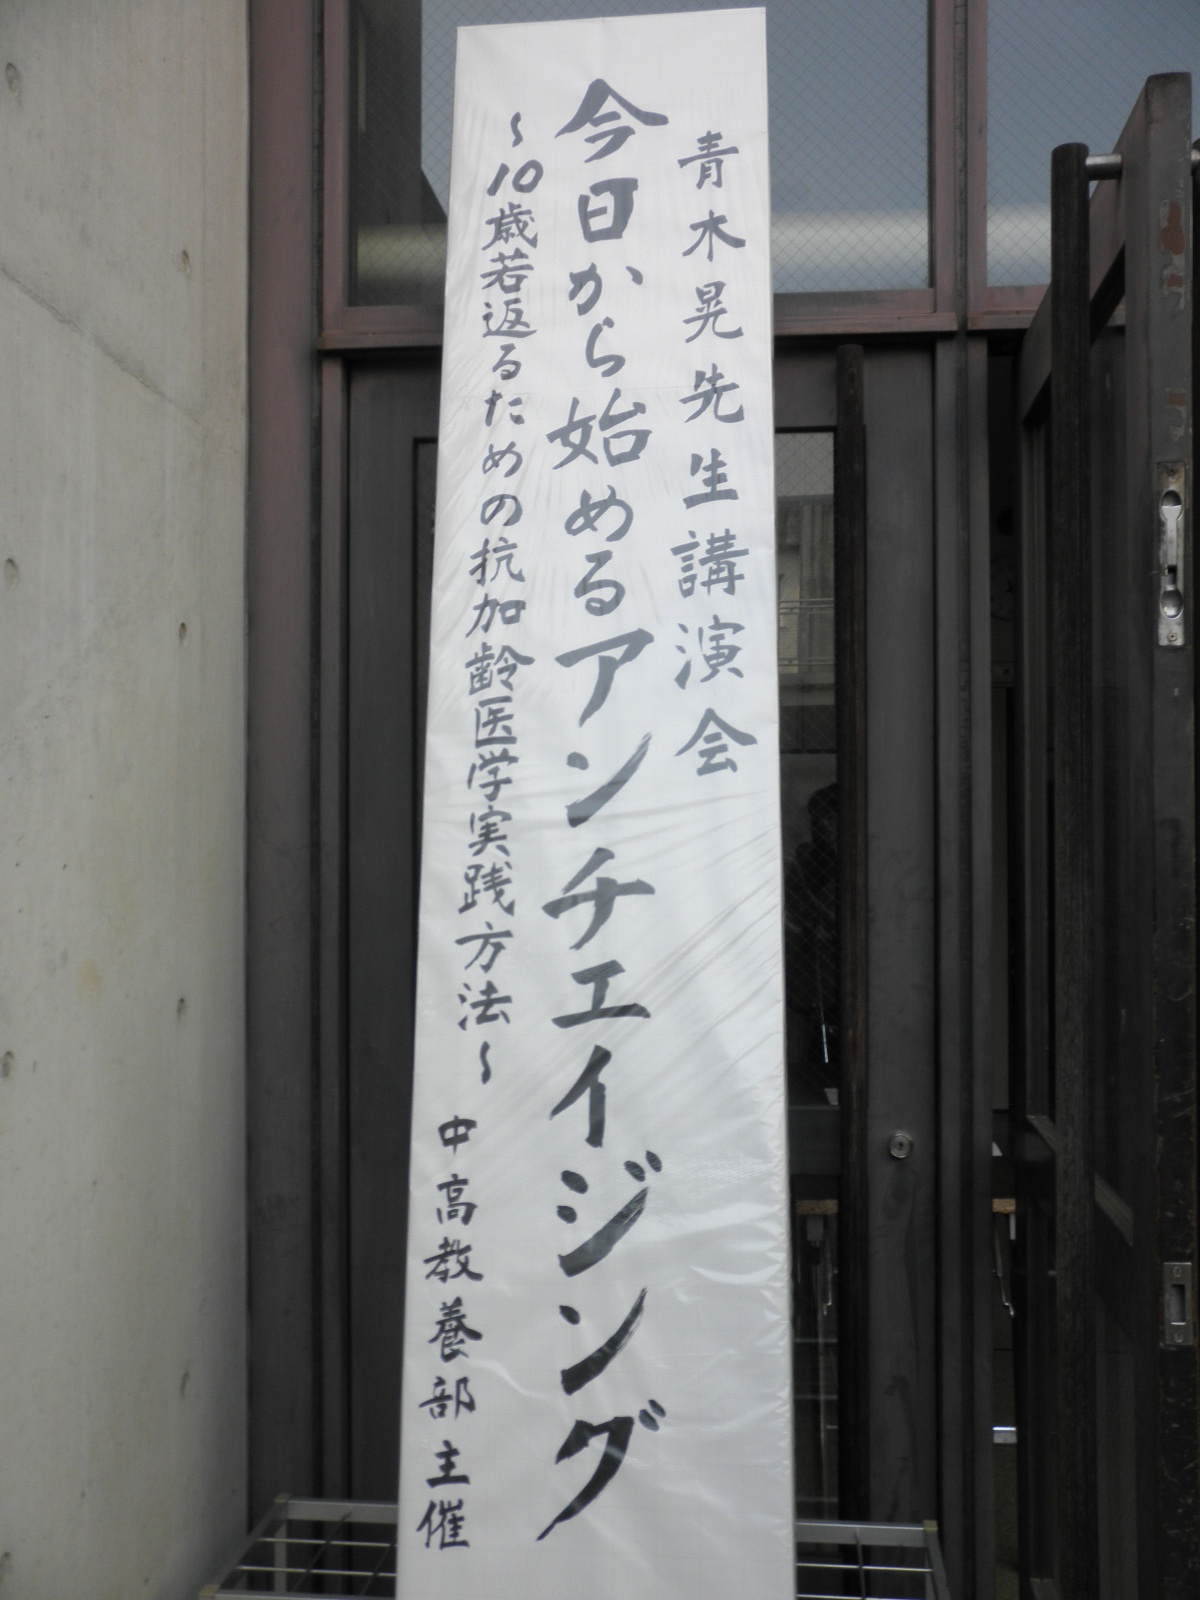 青木晃先生講演会
今日から始めるアンチエイジング
～10歳若返るための抗加齢医学実践方法～
中高教養部主催